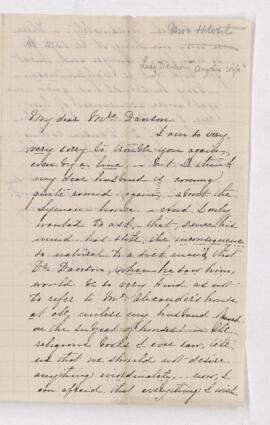 My dear Mrs. Danson
I am so very,
very sorry to trouble you again,
even by a line, - But I think
my dear husband is coming
quite round, again, - about the
Lyman house, - And I only
wanted to ask, that, since his
mind had still the inconsequence
so natural to a sick man, that
Dr. Danson, when he saw him,
would be so very kind as not
to refer to Mr. Alexander's house
at all, unless my husband
on the subject of houses! - in the
religious books I ever saw, tells
us that we should not desire
anything inordinately, - now, I
am afraid that everything I wish